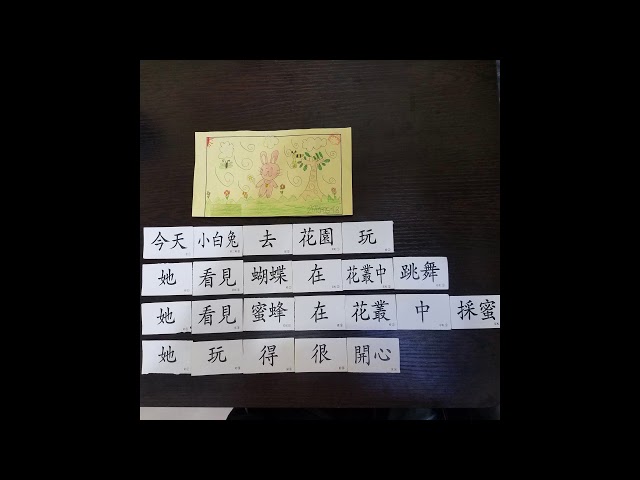 今天 小白兔 去 花園 玩
她 看見 蝴蝶 在 花叢中 跳舞
她 看見 蜜蜂 在 花叢 中 採蜜
她 玩 得 很 開心